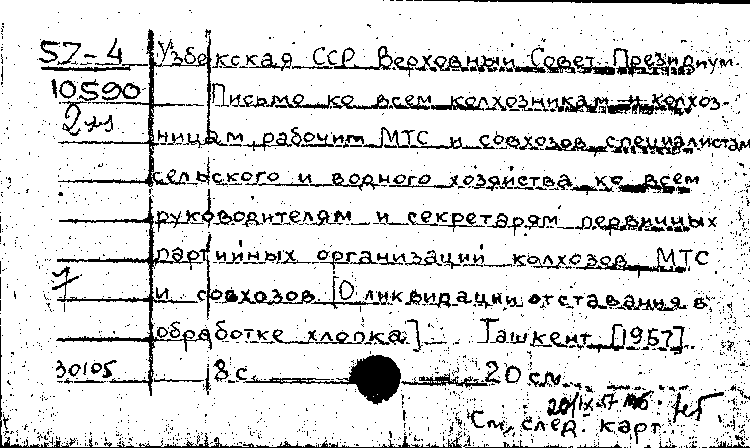 57-4 Узбекская ССР. Верховный Совет. Президиум.
10590 Письмо ко всем колхозникам и колхоз-
2 экз ницам, рабочим МТС и совхозов, специалистам
сельского и водного хозяйства, ко всем
руководителям и секретарям первичных
партийных организаций колхозов, МТС
и совхозов [О ликвидации отставания в
обработке хлопка]. Ташкент, [1957].
30105 8 с. 20 см.
20/IX-57
См. след. карт.